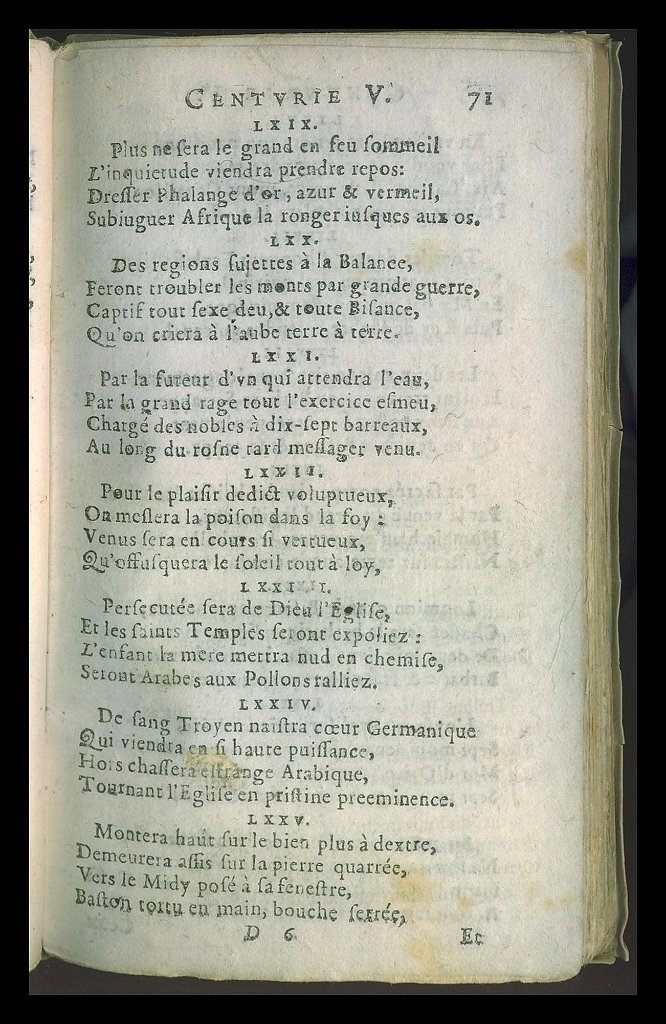 CENTVRIE V. 71
LXIX.
Plus ne ſera le grand en feu ſommeil
L'inquietude viendra prendre repos:
Dreſſer Phalange d'or, azur & vermeil,
Subiuguer Afrique la ronger iuſques aux os.
LXX.
Des regions ſujettes à la Balance,
Feront troubler les monts par grande guerre,
Captif tout ſexe deu, & toute Biſance,
Qu'on criera à l'aube terre à terre.
LXXI.
Par la fureur d'vn qui attendra l'eau,
Par la grand rage tout l'exercice eſmeu,
Chargé des nobles à dix-ſept barreaux,
Au long du roſne tard meſſager venu.
LXXII.
Pour le plaiſir dedict voluptueux,
On meſlera la poiſon dans la foy:
Venus ſera en cours ſi vertueux,
Qu'offuſquera le ſoleil tout à loy,
LXXIII.
Perſecutée ſera de Dieu l'Egliſe,
Et les ſaints Temples ſeront expoliez:
L'enfant la mere mettra nud en chemiſe,
Seront Arabes aux Pollons ralliez.
LXXIV.
De ſang Troyen naiſtra cœur Germanique
Qui viendra en ſi haute puiſſance,
Hors chaſſera eſtrange Arabique,
Tournant l'Egliſe en priſtine preeminence.
LXXV.
Montera haut ſur le bien plus à dextre,
Demeurera aſſis ſur la pierre quarrée,
Vers le Midy poſé à ſa feneſtre,
Baſton tortu en main, bouche ſerrée,
D 6 Et